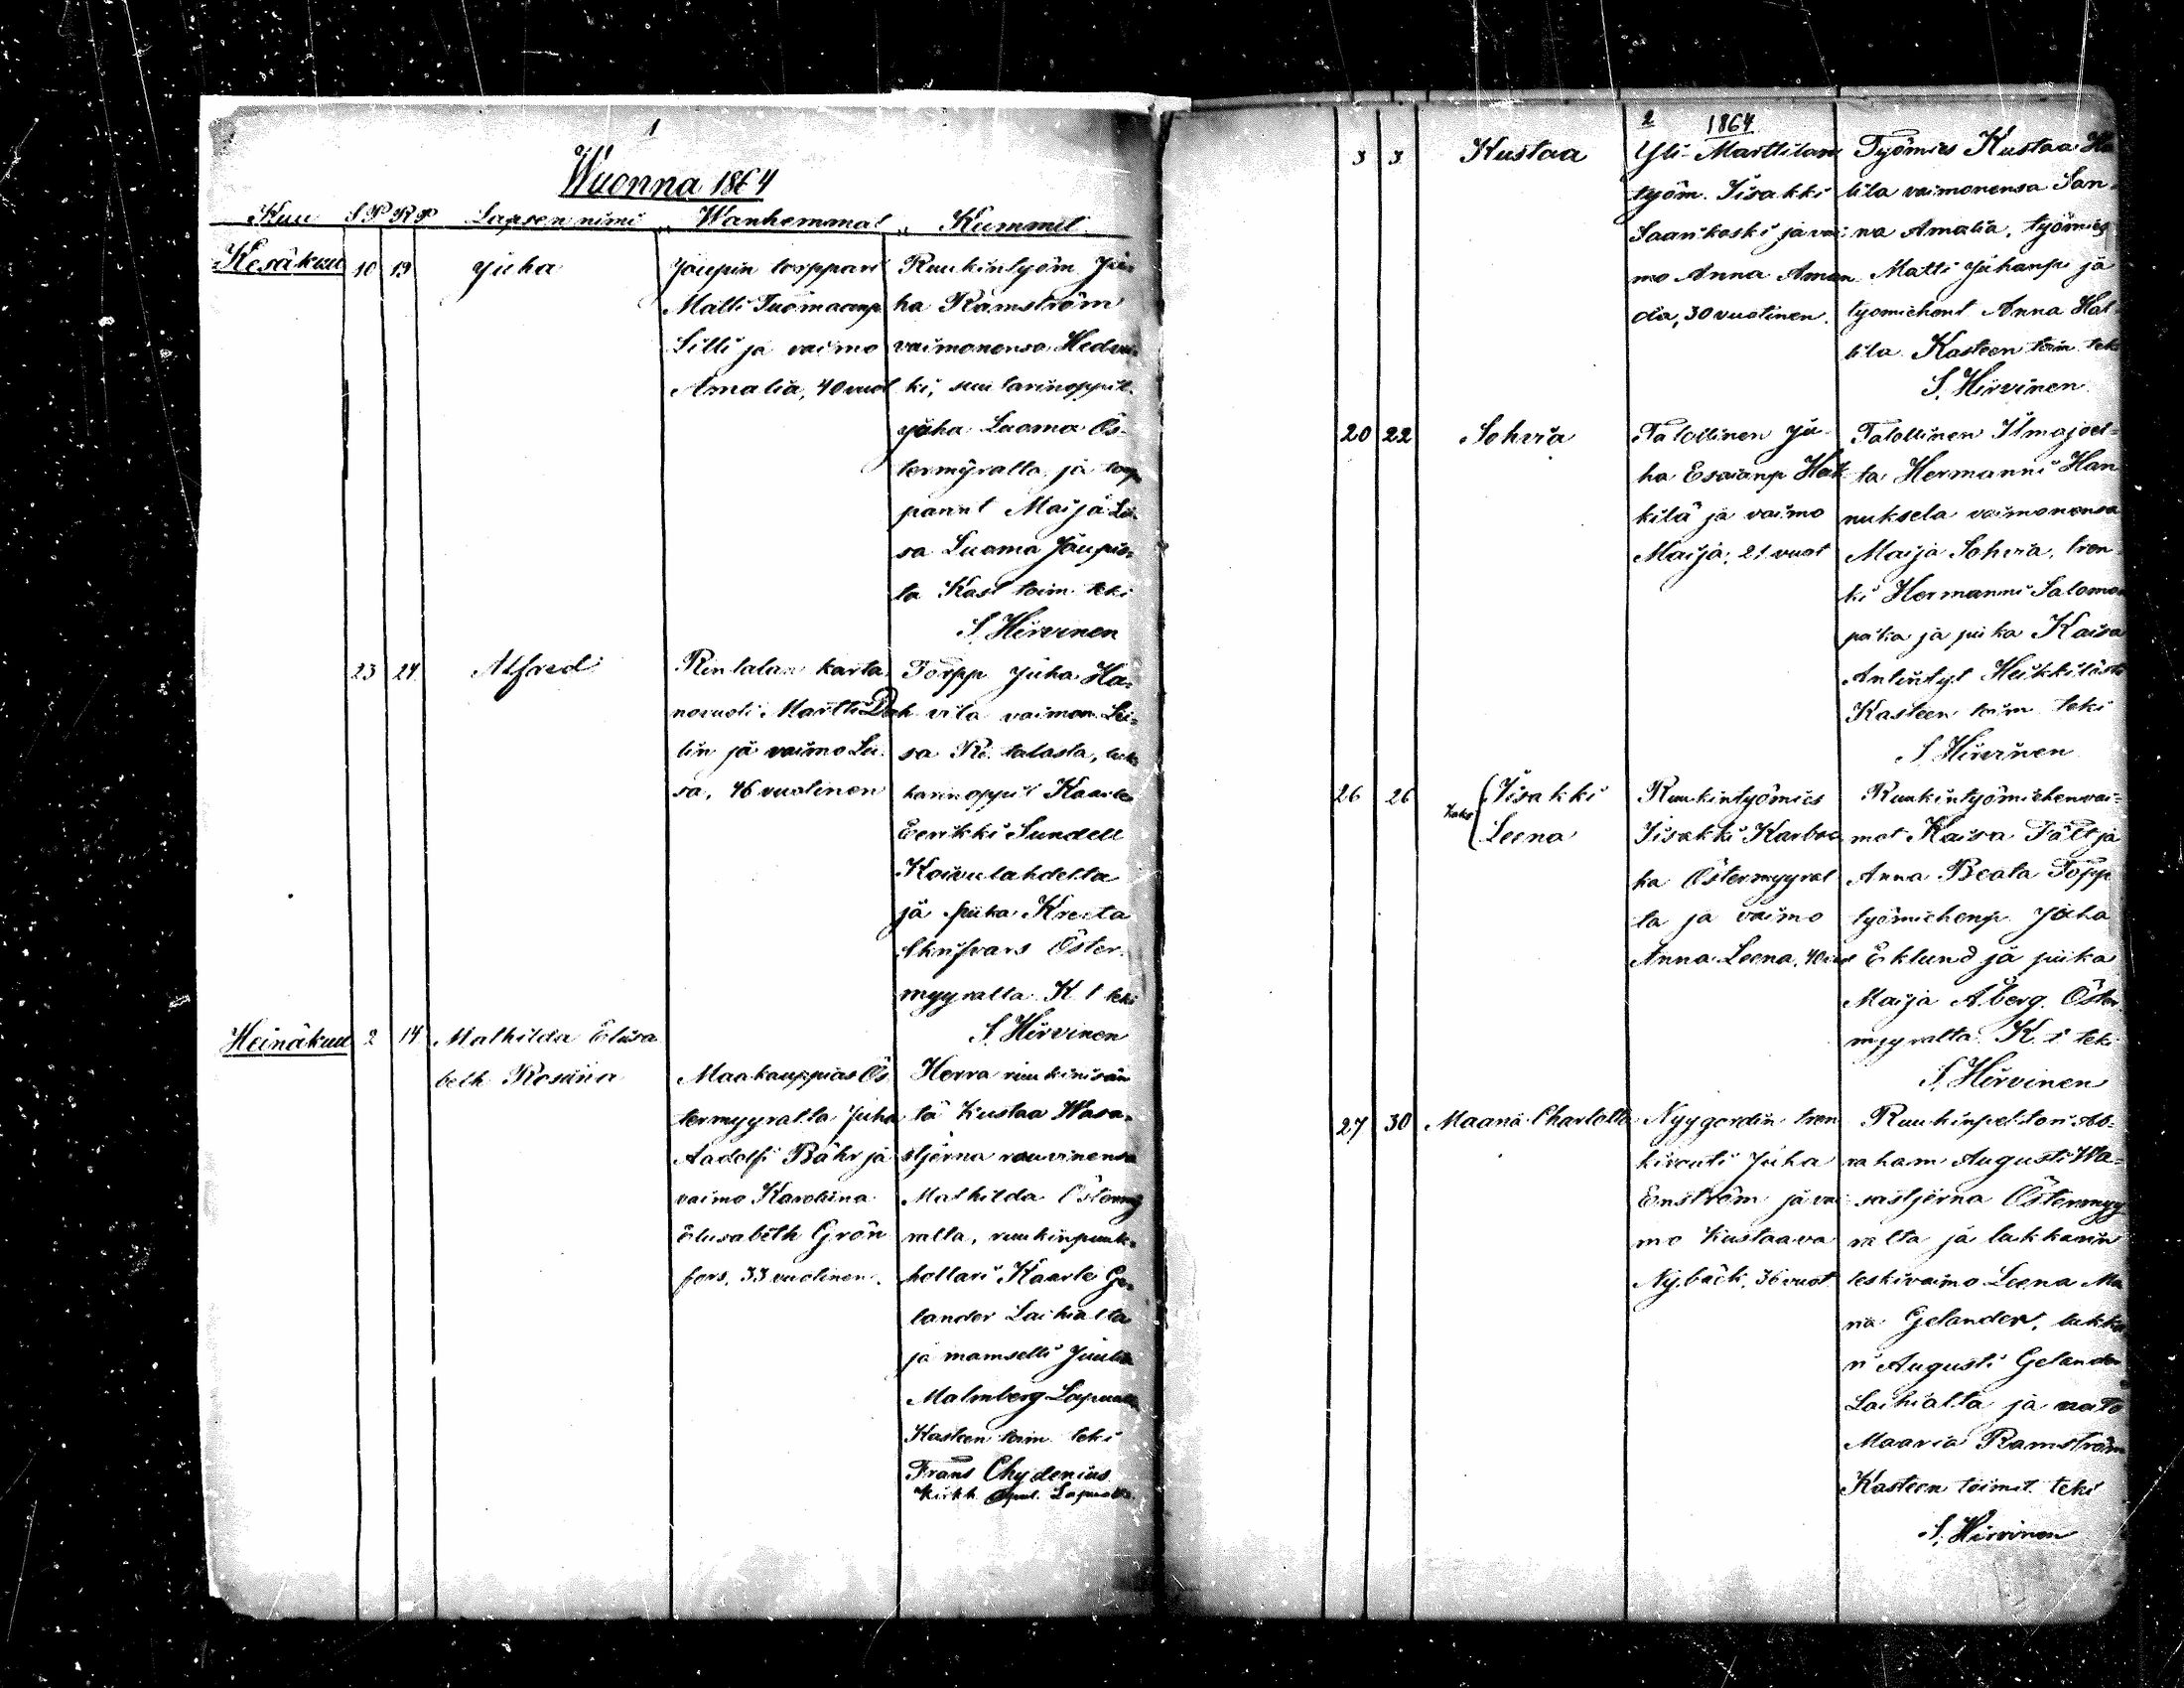 1
Wuonna 1864
Kuu S P K P Lapsen nimi " Wanhemmat " Kummit
Kesäkuu 10 19 Juha
Joupin torppari
Matti Tuomaanp
Silli ja vaimo
Amalia, 40 vuot
Ruukintyöm Ju-
ha Ramström
vaimonensa Hedvi-
ki, suutarinoppil.
Juha Luoma Ös-
termyralta ja torp
parint Maija Lii-
sa Luoma Joupis-
ta Kast toim. teki
S. Hirvinen
23 24 Alfred
Rintalan karta
novuoti Martti Dah
lin ja vaimo Lii-
sa, 46 vuotinen
Torpp Juha Ha-
vila vaimon. Lii-
sa Ri talasta, luk
harinoppil Kaarle
Eerikki Sundell
Koivulahdelta
ja piika Kreeta
Skrifvars Öster-
myyralta K t teki
S. Hirvinen
Heinäkuu 2 14 Mathilda Elisa
beth Rosina
Maakauppias Ös
termyyralta Juha
Aadolfi Bähr ja
vaimo Karoliina
Elisabeth Grön
fors, 33 vuotinen.
Herra ruukinisän
tä Kustaa Wasa-
stjerna rouvinensa
Mathilda Östermy
ralta, ruukinpuuk-
hollari Kaarle Ge-
lander Laihialta
ja mamselli Juulia
Malmberg Lapualta
Kasteen toim. teki
Frans Chydenius
Kirkh. Lapualla.
2 1864
3 3 Kustaa
Yli-Marttilan
työm. Iisakki
Saarikoski ja vai-
mo Anna Aman
da, 30 vuotinen.
Työmies Kustaa Ha
lila vaimonensa San-
na Amalia, työmies
Matti Juhanp. ja
tyomiehent Anna Hal-
lila Kasteen toim. teki
S. Hirvinen
20 22 Sohvia
Talollinen Ju-
ha Esaianp Heik
kilä ja vaimo
Maija, 21 vuot
Talollinen Ilmajoel-
ta Hermanni Han
nuksela vaimonensa
Maija Sohvia, tren-
ki Hermanni Salomon
poika ja piika Kaisa
Antintyt Heikkilästä
Kasteen toim teki
S. Hirvinen
26 26 kaks Iisakki
Leena
Ruukintyömies
Iisakki Karbac
ka Östermyyral
ta ja vaimo
Anna Leena, 40 vuot
Ruukintyömiehenvai-
mot Kaisa Fält ja
Anna Beata Topp
työmiehenp. Juha
Eklund ja piika
Maija Åberg. Öster-
myyralta K. t. teki
S. Hirvinen
27 30 Maaria Charlotta
Nyygordin tren
kivouti Juha
Enström ja vai
mo Kustaava
Nybäck, 36 vuot
Ruukinpehtori Ab-
raham Augusti Wa-
sastjerna Östermyy
ralta ja lukkarin
leskivaimo Leena Ma
ria Gelander, lukka
ri Augusti Gelander
Laihialta ja
Maaria Ramström
Kasteen toimit. teki
S. Hirvinen